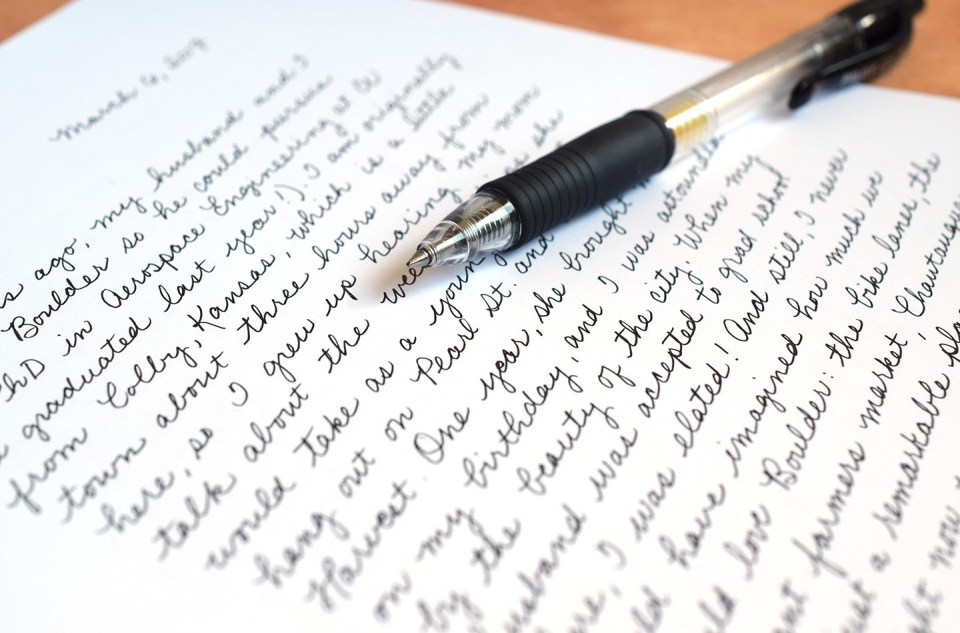 March 6,
s ago, my husband and I
Boulder so he could pursue
PhD in Aerospace Engineering at
graduated last year!). I am originally
from Colby, Kansas, which is a little
town about three hours away from
here, so I grew up hearing my mom
talk about the she
would take as a young
hang out on Pearl St. and
Harvest. One year, she brought
on my birthday, and I was
by the beauty of the city. When my
husband was accepted to grad school
I was elated! And still, I never
have imagined how much we
love Boulder: the bike lanes, the
farmers market,
a remarkable
now